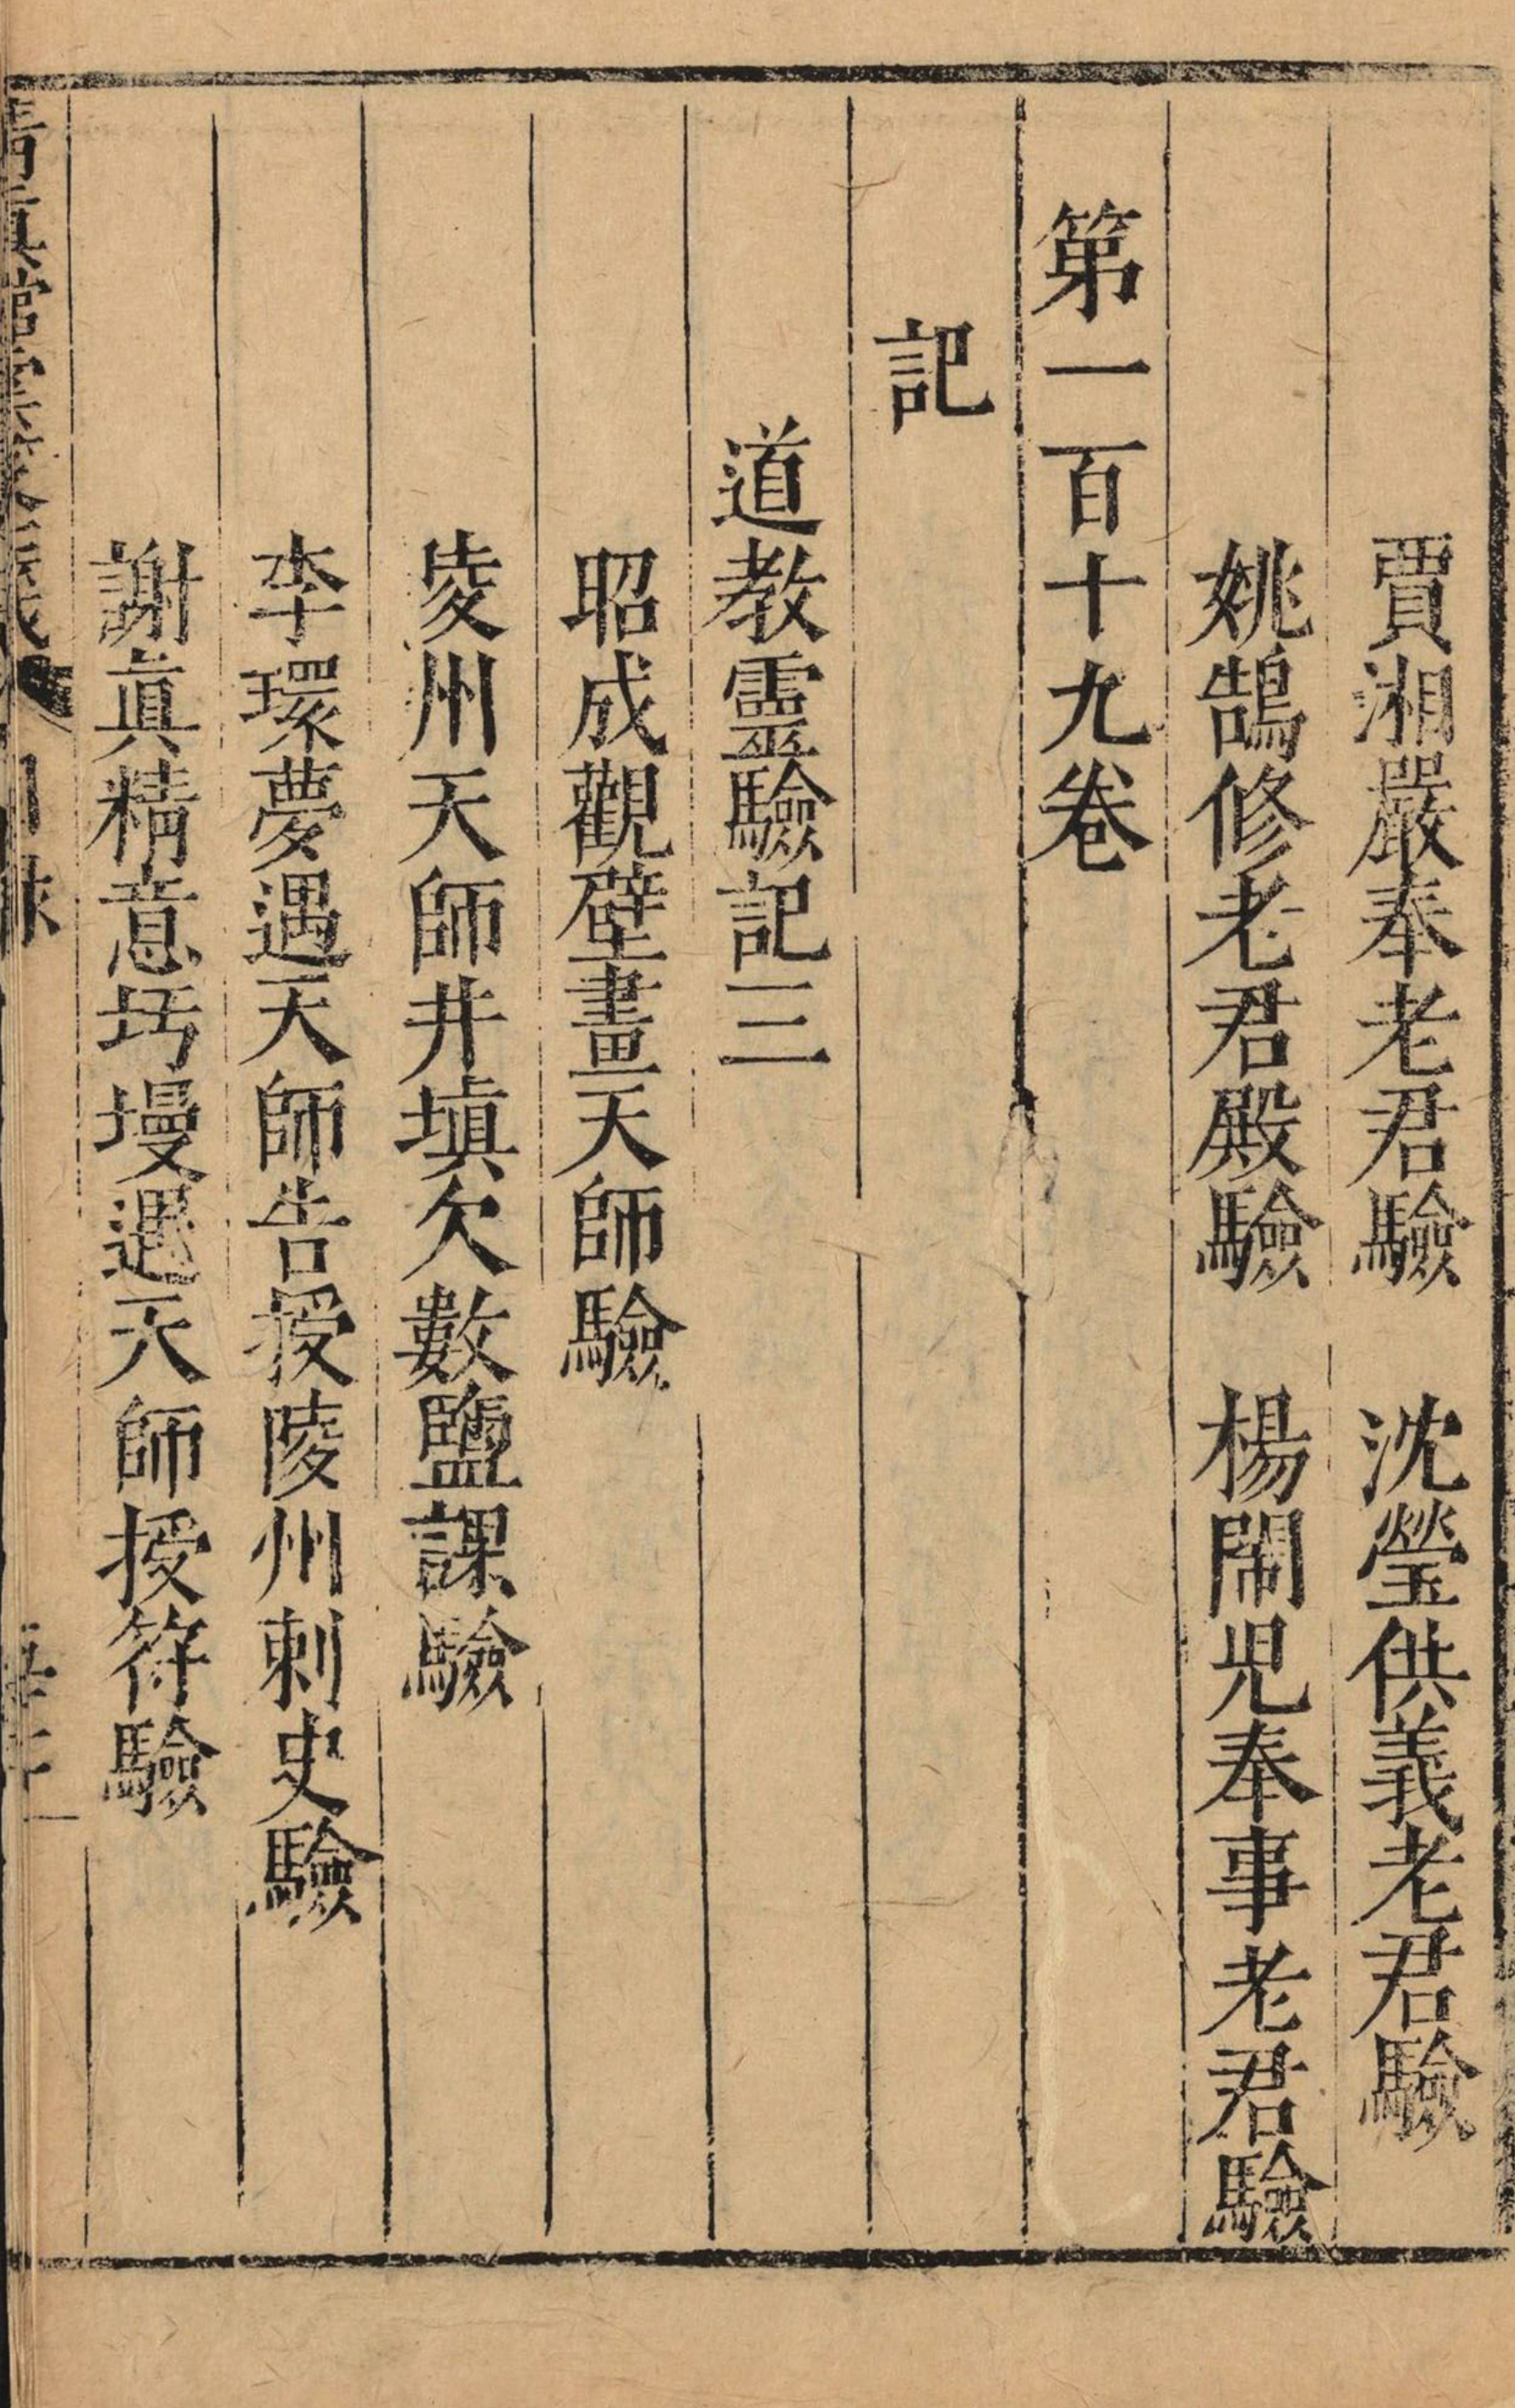 賈湘嚴奉老君驗　沈瑩供義老君驗
姚鵠修老君殿驗　楊鬧児奉事老君驗
第一百十九卷
記
道教靈驗記三
昭成觀壁畫天師驗
夌州天師井塡欠數鹽課驗
李環夢遇天師告授陵州刺史驗
謝眞精意圬墁遇天師授符驗